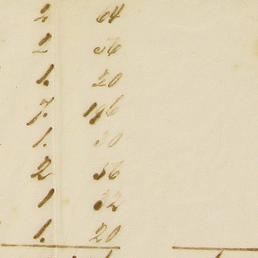 2 64
2 56
1. 20
7. 196
1. 30
2 56
1 32
1. 20